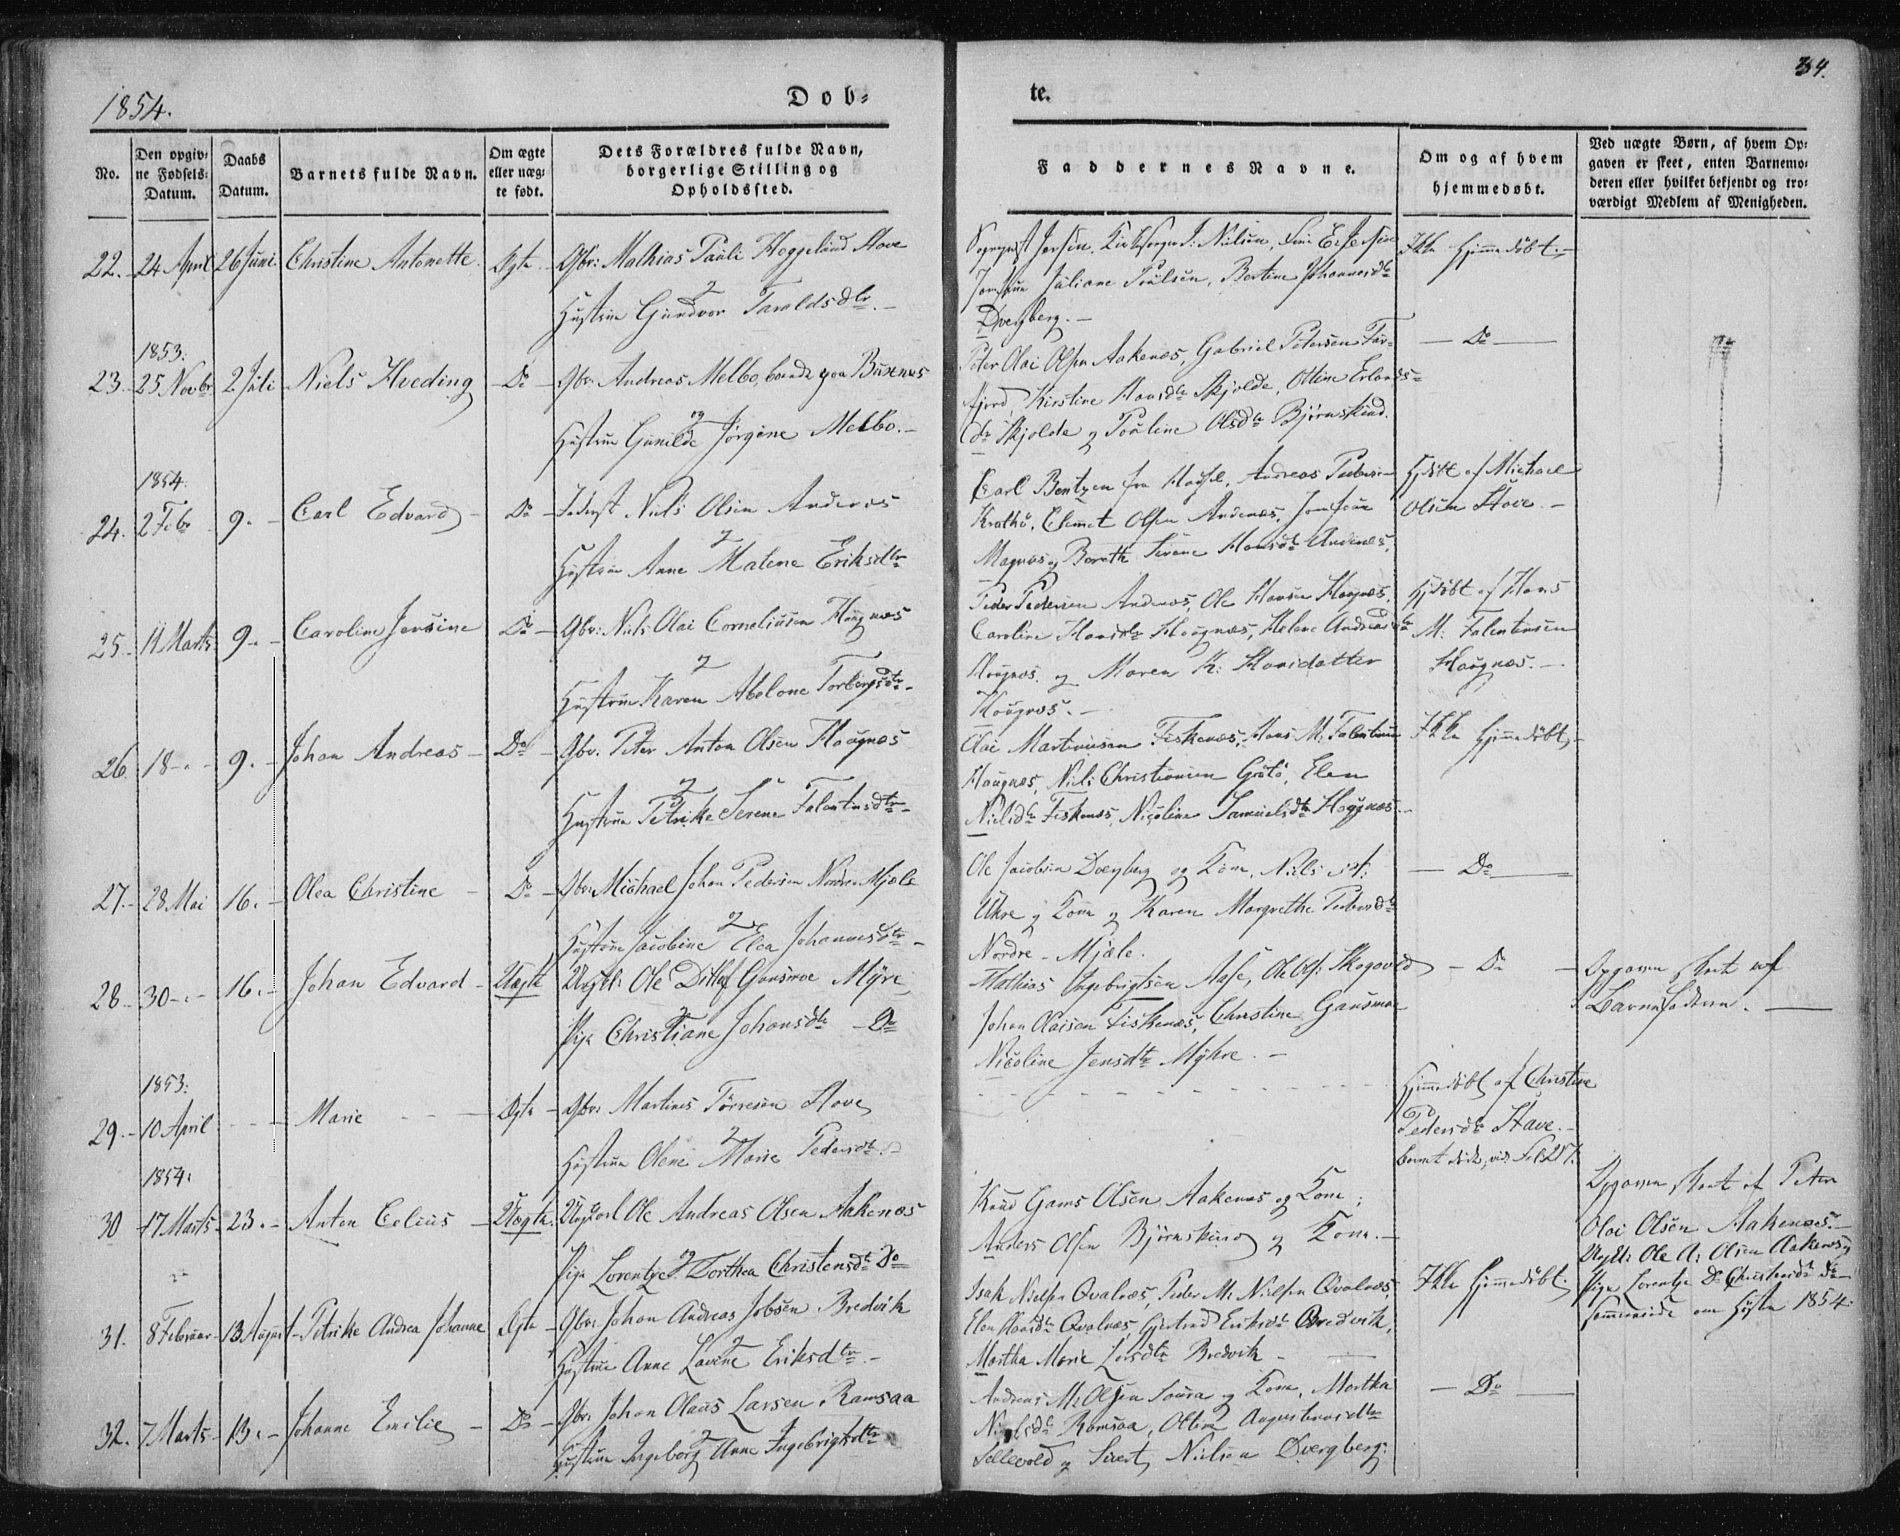 1854.
Dob-
te.
34.
No.
Den opgiv-
ne Fødsels-
Datum.
Daabs
Datum.
Barnets fulde Navn.
Om ægte
eller uæg-
te født.
Dets Forældres fulde Navn,
borgerlige Stilling og
Opholdssted.
Faddernes Navne.
Om og af hvem
hjemmedøbt.
Ved uægte Børn, af hvem Op-
gaven er skeet, enten Barnemo-
deren eller hvilket bekjendt og tro-
værdigt Medlem af Menigheden.
22. 24 April 26 Juni Christine Antonette. Ægte Gbr: Mathias Pauli Heggelund Stave
og
Hustrue Gundvor Taraldsdtr.
Jomfrue Juliane Poulsen, Bertine Johannesdtr
Dverberg.
Ikke hjemmedøbt.
1853.
23. 25 Novbr 2 Juli Niels Hveding Do Gbr. Andreas Melbo, boende paa Buxenæs
og
Hustrue Gunilde Jørgine Melbo.
Peter Olai Olsen Aakenæs, Gabriel Petersen For-
fjord, Kirstine Hansdtr Skjolde, Ottine Erlands-
dtr Skjolde og Pauline Olsdtr Bjørnskind.
Do
1854.
24. 2 Febr 9. Carl Edvard Do Inderst Niels Olsen Andenæs
og
Hustrue Anne Malene Eriksdtr
Carl Bentzen fra Andreas Pedersen
Clemet Olsen Andenæs, Jomfrue
Magnus og Berethe Sirene Hansdtr Andenæs.
Hjdøbt af Michael
Olsen Stave.
25. 11 Marts 9. Caroline Jensine Do Gbr: Niels Olai Corneliusen Haugnæs
og
Hustrue Karen Abelone Torbergsdtr.
Peder Pedersen Andenæs, Ole Hansen Haugnæs,
Caroline Hansdtr Haugnæs, Helene Andreasdtr
Haugnæs og Maren K: Hansdatter
Haugnæs.
Hjdøbt af Hans
M: Falentinsen
Haugnæs.
26. 18 9. Johan Andreas Do Gbr. Peter Anton Olsen Haugnæs
og
Hustrue Petrike Serene Falentinsdtr.
Olai Martinusen Fiskenæs, Hans M. Falentinsen
Haugnæs, Niels Christiansen Grøtø, Elen
Nielsdtr Fiskenæs, Nicoline Samuelsdtr Haugnæs.
Ikke hjemmedøbt.
27. 28 Mai 16. Olea Christine Do Gbr: Michael Johan Pedersen Nordre Mjæle
og
Hustrue Jacobine Elea Johannesdtr.
Ole Jacobsen Dverberg og Kone, Niels
og Kone og Karen Margrethe Pedersdtr
Nordre Mjæle.
Do
28. 30 16. Johan Edvard Uægte Ungkl: Ole Ditlef Gansmoe Myre,
og
Pige Christiane Johansdtr Do
Mathias Ingebrigtsen Aase, Ole Skogvold
Johan Olaisen Fiskenæs, Christine Gansmoe
Nicoline Jensdtr Myhre.
Do
Opgaven skeet af
Barnefaderen.
1853.
29. 10 April Marie Ægte Gbr: Martines Tørresen Stave
og
Hustrue Olene Marie Pedersdtr.
Hjemmedøbt af Christine
Pedersdtr Stave.
1854.
30 17 Marts 23. Anton Celius Uægte. Ungkarl Ole Andreas Olsen Aakenæs
og
Pige Lorentze Dorthea Christensdtr Do
Knud Gams Olsen Aakenæs og Kone;
Anders Olsen Bjørnskind og Kone.
Opgaven skeet af Peter
Olai Olsen Aakenæs.
Ungkl: Ole A: Olsen Aakenæs og
Pige Lorentze D. Christensdtr Do
1854.
31. 8 Februar 13 August Petrike Andrea Johanne Ægte Gbr: Johan Andreas Jobsen Bredvik
og
Hustrue Anne Lovine Eriksdtr.
Isak Nielsen Qvalnæs, Peder M: Nielsen Qvalnæs,
Elen Hansdtr Qvalnæs, Gjertrud Eriksdtr Bredvik,
Martha Marie Larsdtr Bredvik
Ikke hjemmedøbt.
32. 7 Marts 13. Johanne Emilie Do Gbr: Johan Olaus Larsen Ramsaa
og
Hustrue Ingeborg Anne Ingebrigtsdtr
Andreas M: Olsen Soura og Kone, Martha
Nielsdtr Ramsaa, Ottine Augustinusdtr
Sellevold og Sivert Nielsen Dverberg.
Do